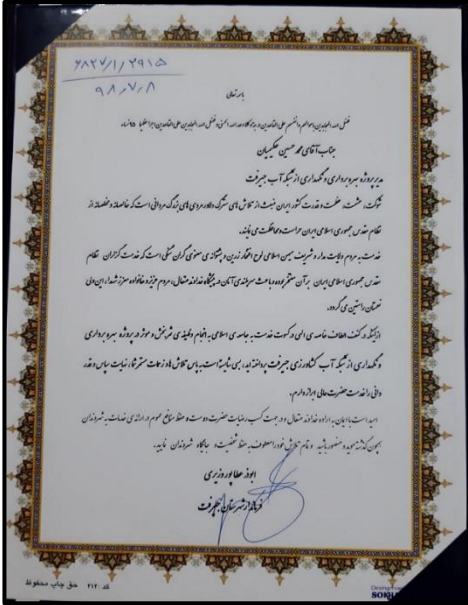 ۶۸۲۷/۱/۲۹۱۵
۹۸,۷,۸
باسمه تعالی
فضل الله المجاهدین باموالهم و انفسهم علی القاعدین درجة و کلا وعد الله الحسنی و فضل الله المجاهدین علی القاعدین اجرا عظیما ۹۵ نساء
جناب آقای محمد حسین حکیمیان
مدیر پروژه بهره برداری و نگهداری از شبکه آب جیرفت
شوکت، حشمت، عظمت و قدرت کشور ایران منبعث از تلاش های سترگ و دلاورمردی های بزرگ مردانی است که خالصانه و مخلصانه از
نظام مقدس جمهوری اسلامی ایران حراست و محافظت می نمایند.
خدمت به مردم ولایت مدار و شریف میهن اسلامی لوح افتخار زرین و پشتوانه ی معنوی گران سنگی است که خدمت گزاران نظام
مقدس جمهوری اسلامی ایران بر آن مفتخر بوده و باعث سربلندی آنان در پیشگاه خداوند متعال، مردم عزیز و خانواده معزز شهدا، این ولی
نعمتان راستین می گردد.
از اینکه در کنف الطاف خاصه ی الهی در کسوت خدمت به جامعه ی اسلامی به انجام وظیفه ی ثمربخش و موثر در پروژه بهره برداری
و نگهداری از شبکه آب کشاورزی جیرفت پرداخته اید، بسی شایسته است به پاس تلاش ها و زحمات مستمر شما، نهایت سپاس و قدر
دانی را خدمت حضرتعالی ابراز دارم.
امید است با ایمان به اراده خداوند متعال و در جهت کسب رضایت حضرت دوست و حفظ منافع عموم در ارائه ی خدمات به شهروندان
همچون گذشته موید و منصور باشید و تمام تلاش خود را معطوف به حفظ شخصیت و جایگاه شهروندان نمایید.
ابوذر عطاپور وزیری
فرماندار شهرستان جیرفت
کد ۲۱۲۰ حق چاپ محفوظ